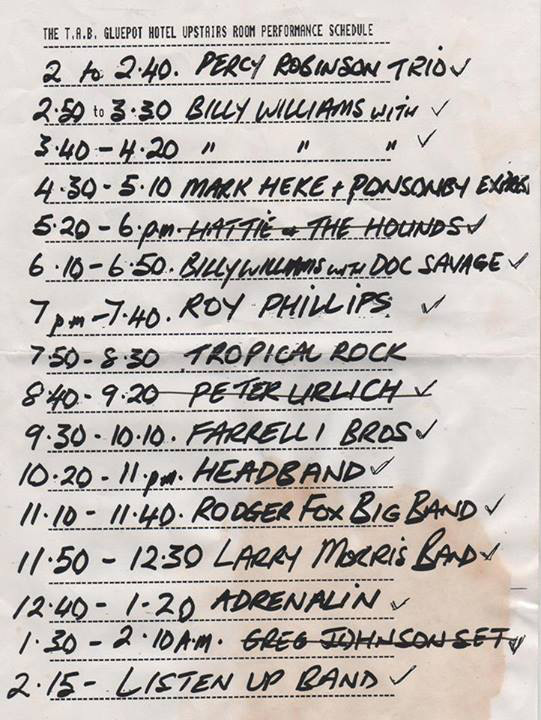 THE T.A.B. GLUEPOT HOTEL UPSTAIRS ROOM PERFORMANCE SCHEDULE
2 to 2.40. PERCY ROBINSON TRIO ✓
2.50 to 3.30 BILLY WILLIAMS WITH ✓
3.40 - 4.20 " " " ✓
4.30 - 5.10 MARK HEKE + PONSONBY EXPRES
5.20 - 6.pm. HATTIE & THE HOUNDS ✓
6.10 - 6.50. BILLY WILLIAMS with DOC SAVAGE ✓
7pm - 7.40. ROY PHILLIPS ✓
7.50 - 8.30 TROPICAL ROCK
8.40 - 9.20 PETER URLICH ✓
9.30 - 10.10. FARRELLI BROS ✓
10.20 - 11 pm. HEADBAND ✓
11.10 - 11.40. RODGER FOX BIG BAND ✓
11.50 - 12.30 LARRY MORRIS BAND ✓
12.40 - 1-20 ADRENALIN ✓
1.30 - 2.10 A.M. GREG JOHNSON SET ✓
2.15 - LISTEN UP BAND ✓